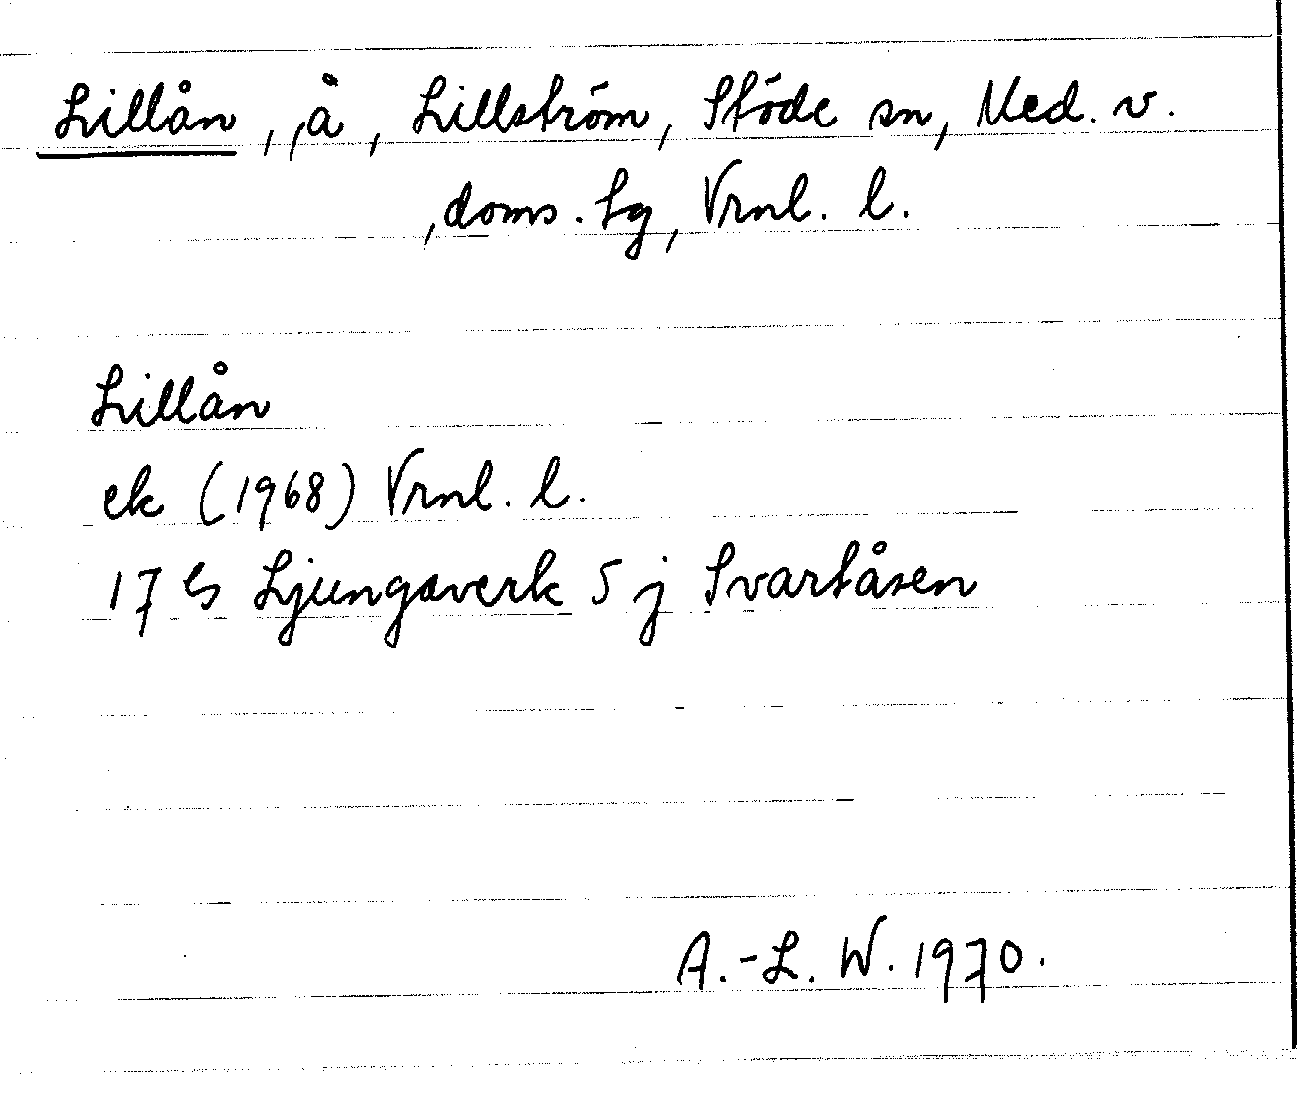 Lillån, å, Lillström, Stöde sn, Med. v.
doms. sg, Vrnl. l.
Lillån
ek (1968) Vrnl. l.
17 G Ljungaverk 5 j Svartåsen
A.-L. W. 1970.